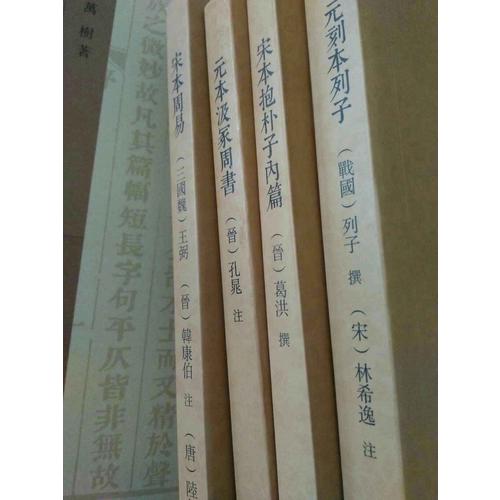 元刻本列子 （戰國）列子 撰 （宋）林希逸 注
宋本抱朴子內篇 （晉）葛洪 撰
元本汲冢周書 （晉）孔晁 注
宋本周易 （三國魏）王弼 （晉）韓康伯 注 （唐）陸
萬樹著
之微妙故凡其篇幅短長字句平仄皆非無故
而又精於聲